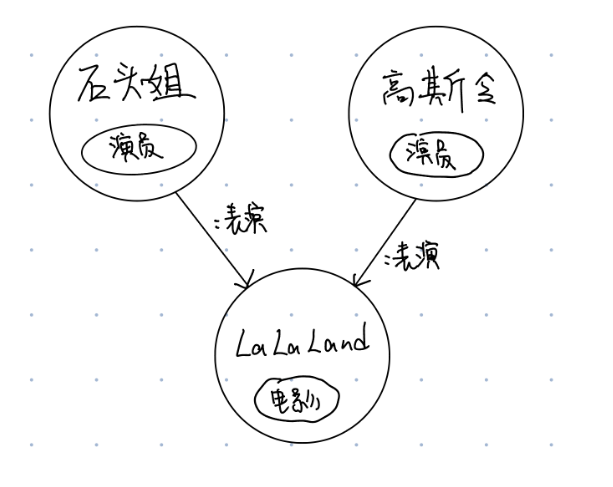 石头姐
演员
高斯令
演员
:表演
:表演
LaLaLand
电影